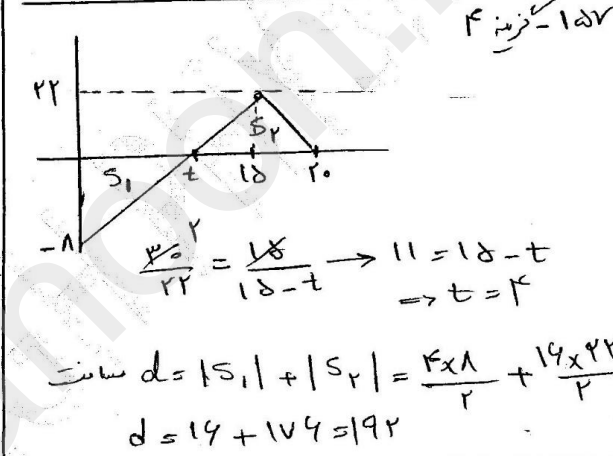 ۱۵۷- گزینه ۴
۲۲
S₂
S₁ t ۱۵ ۲۰
-۸
۳۰/۲۲ = ۱۵/(۱۵-t) → ۱۱ = ۱۵-t
۲
=> t = ۴
مسافت d = |S₁| + |S₂| = (۴×۸)/۲ + (۱۶×۲۲)/۲
d = ۱۶ + ۱۷۶ = ۱۹۲